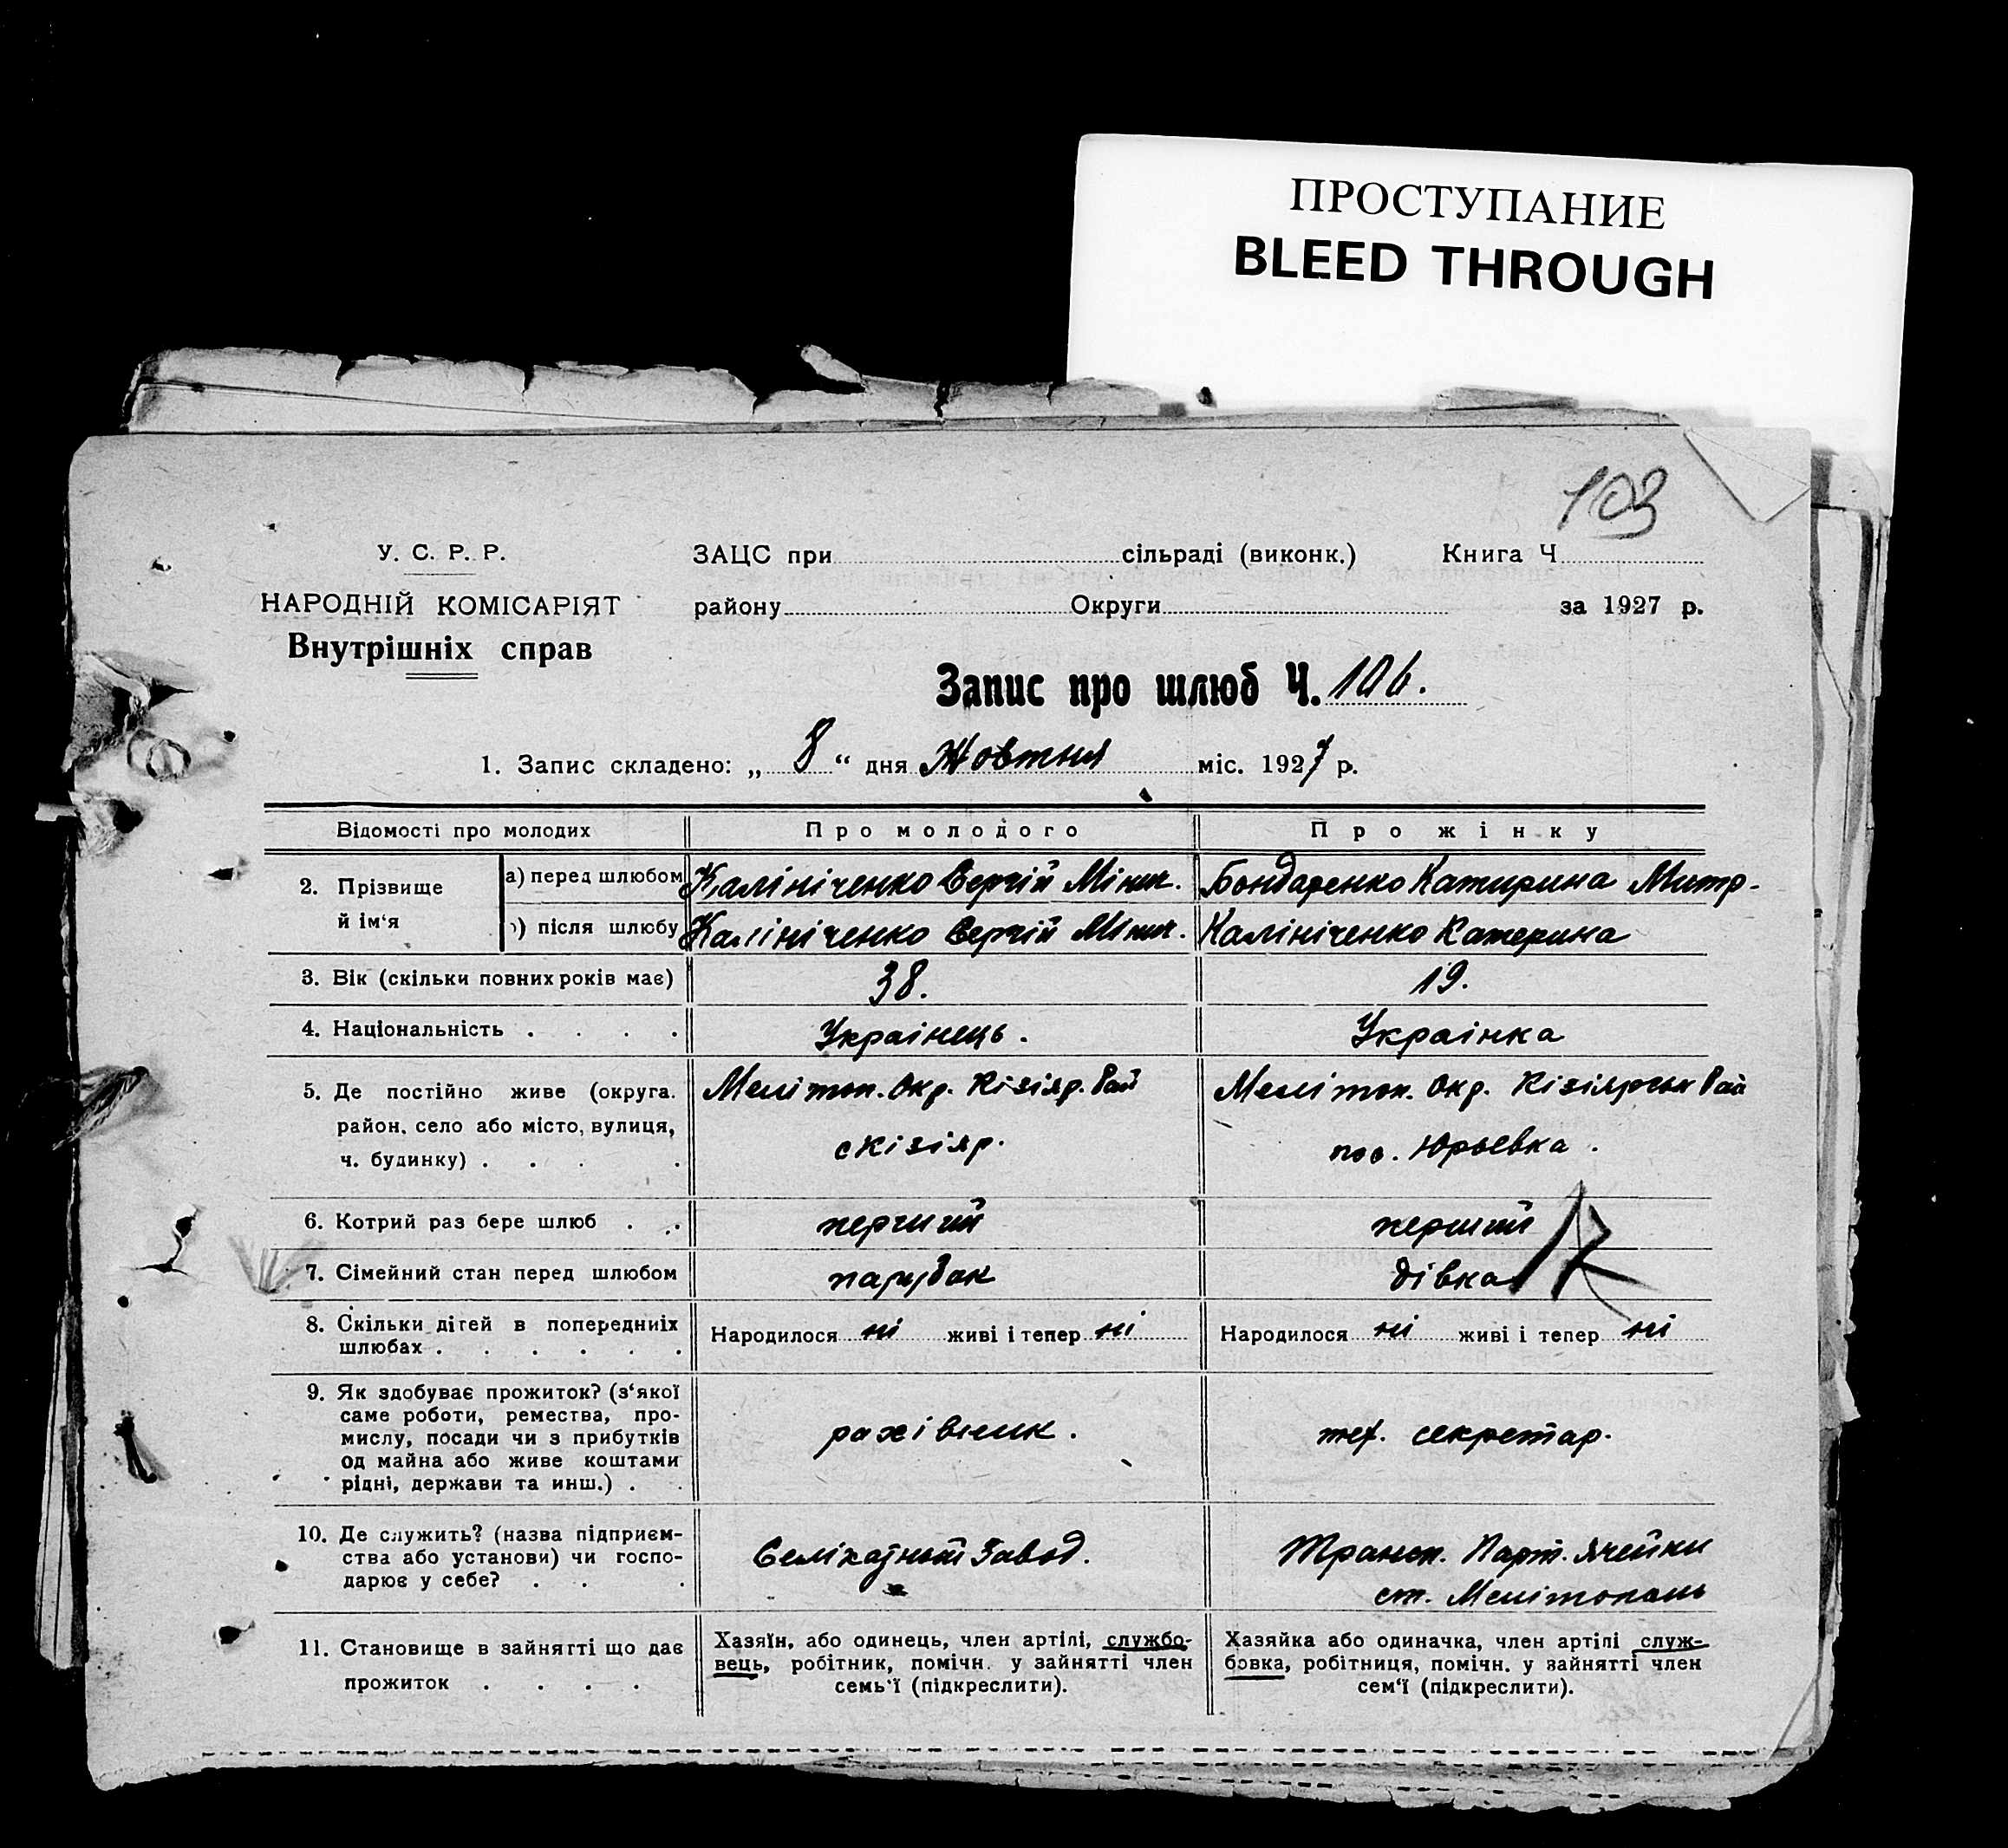 ПРОСТУПАНИЕ
BLEED THROUGH
103
У. С. Р. Р.
НАРОДНІЙ КОМІСАРІЯТ
Внутрішніх справ
ЗАЦС при сільраді (виконк.) Книга Ч
району Округи за 1927 р.
Запис про шлюб Ч. 106.
1. Запис складено: „ 8 “ дня Жовтня міс. 1927 р.
Відомості про молодих Про молодого Про жінку
2. Прізвище й ім‘я
а) перед шлюбом Калініченко Сергій Мін. Бондаренко Катирина Митр.
) після шлюбу Калініченко Сергій Мін. Калініченко Катерина
3. Вік (скільки повних років має) 38. 19.
4. Національність . . . . Украінець. Украінка
5. Де постійно живе (округа. Мелітоп. Окр. Кізіяр. Рай Мелітоп. Окр. Кізіярськ Рай
район, село або місто, вулиця,
ч. будинку) . . . . с Кізіяр. пос. Юрьевка.
6. Котрий раз бере шлюб . . перший перший
7. Сімейний стан перед шлюбом парубок дівка
8. Скільки дітей в попередніх
шлюбах . . . . . . Народилося ні живі і тепер ні Народилося ні живі і тепер ні
9. Як здобуває прожиток? (з‘якої
саме роботи, ремества, про-
мислу, посади чи з прибутків
од майна або живе коштами
рідні, держави та инш.) . . рахівник. тех. секретар.
10. Де служить? (назва підприєм-
ства або установи) чи госпо-
дарює у себе? . . . Селікатный Завод. Трансп. Парт. Ячейки
ст. Мелітополь
11. Становище в зайнятті що дає
прожиток . . . .
Хазяїн, або одинець, член артілі, службо-
вець, робітник, помічн. у зайнятті член
семь‘ї (підкреслити).
Хазяйка або одиначка, член артілі служ-
бовка, робітниця, помічн. у зайнятті член
сем‘ї (підкреслити).